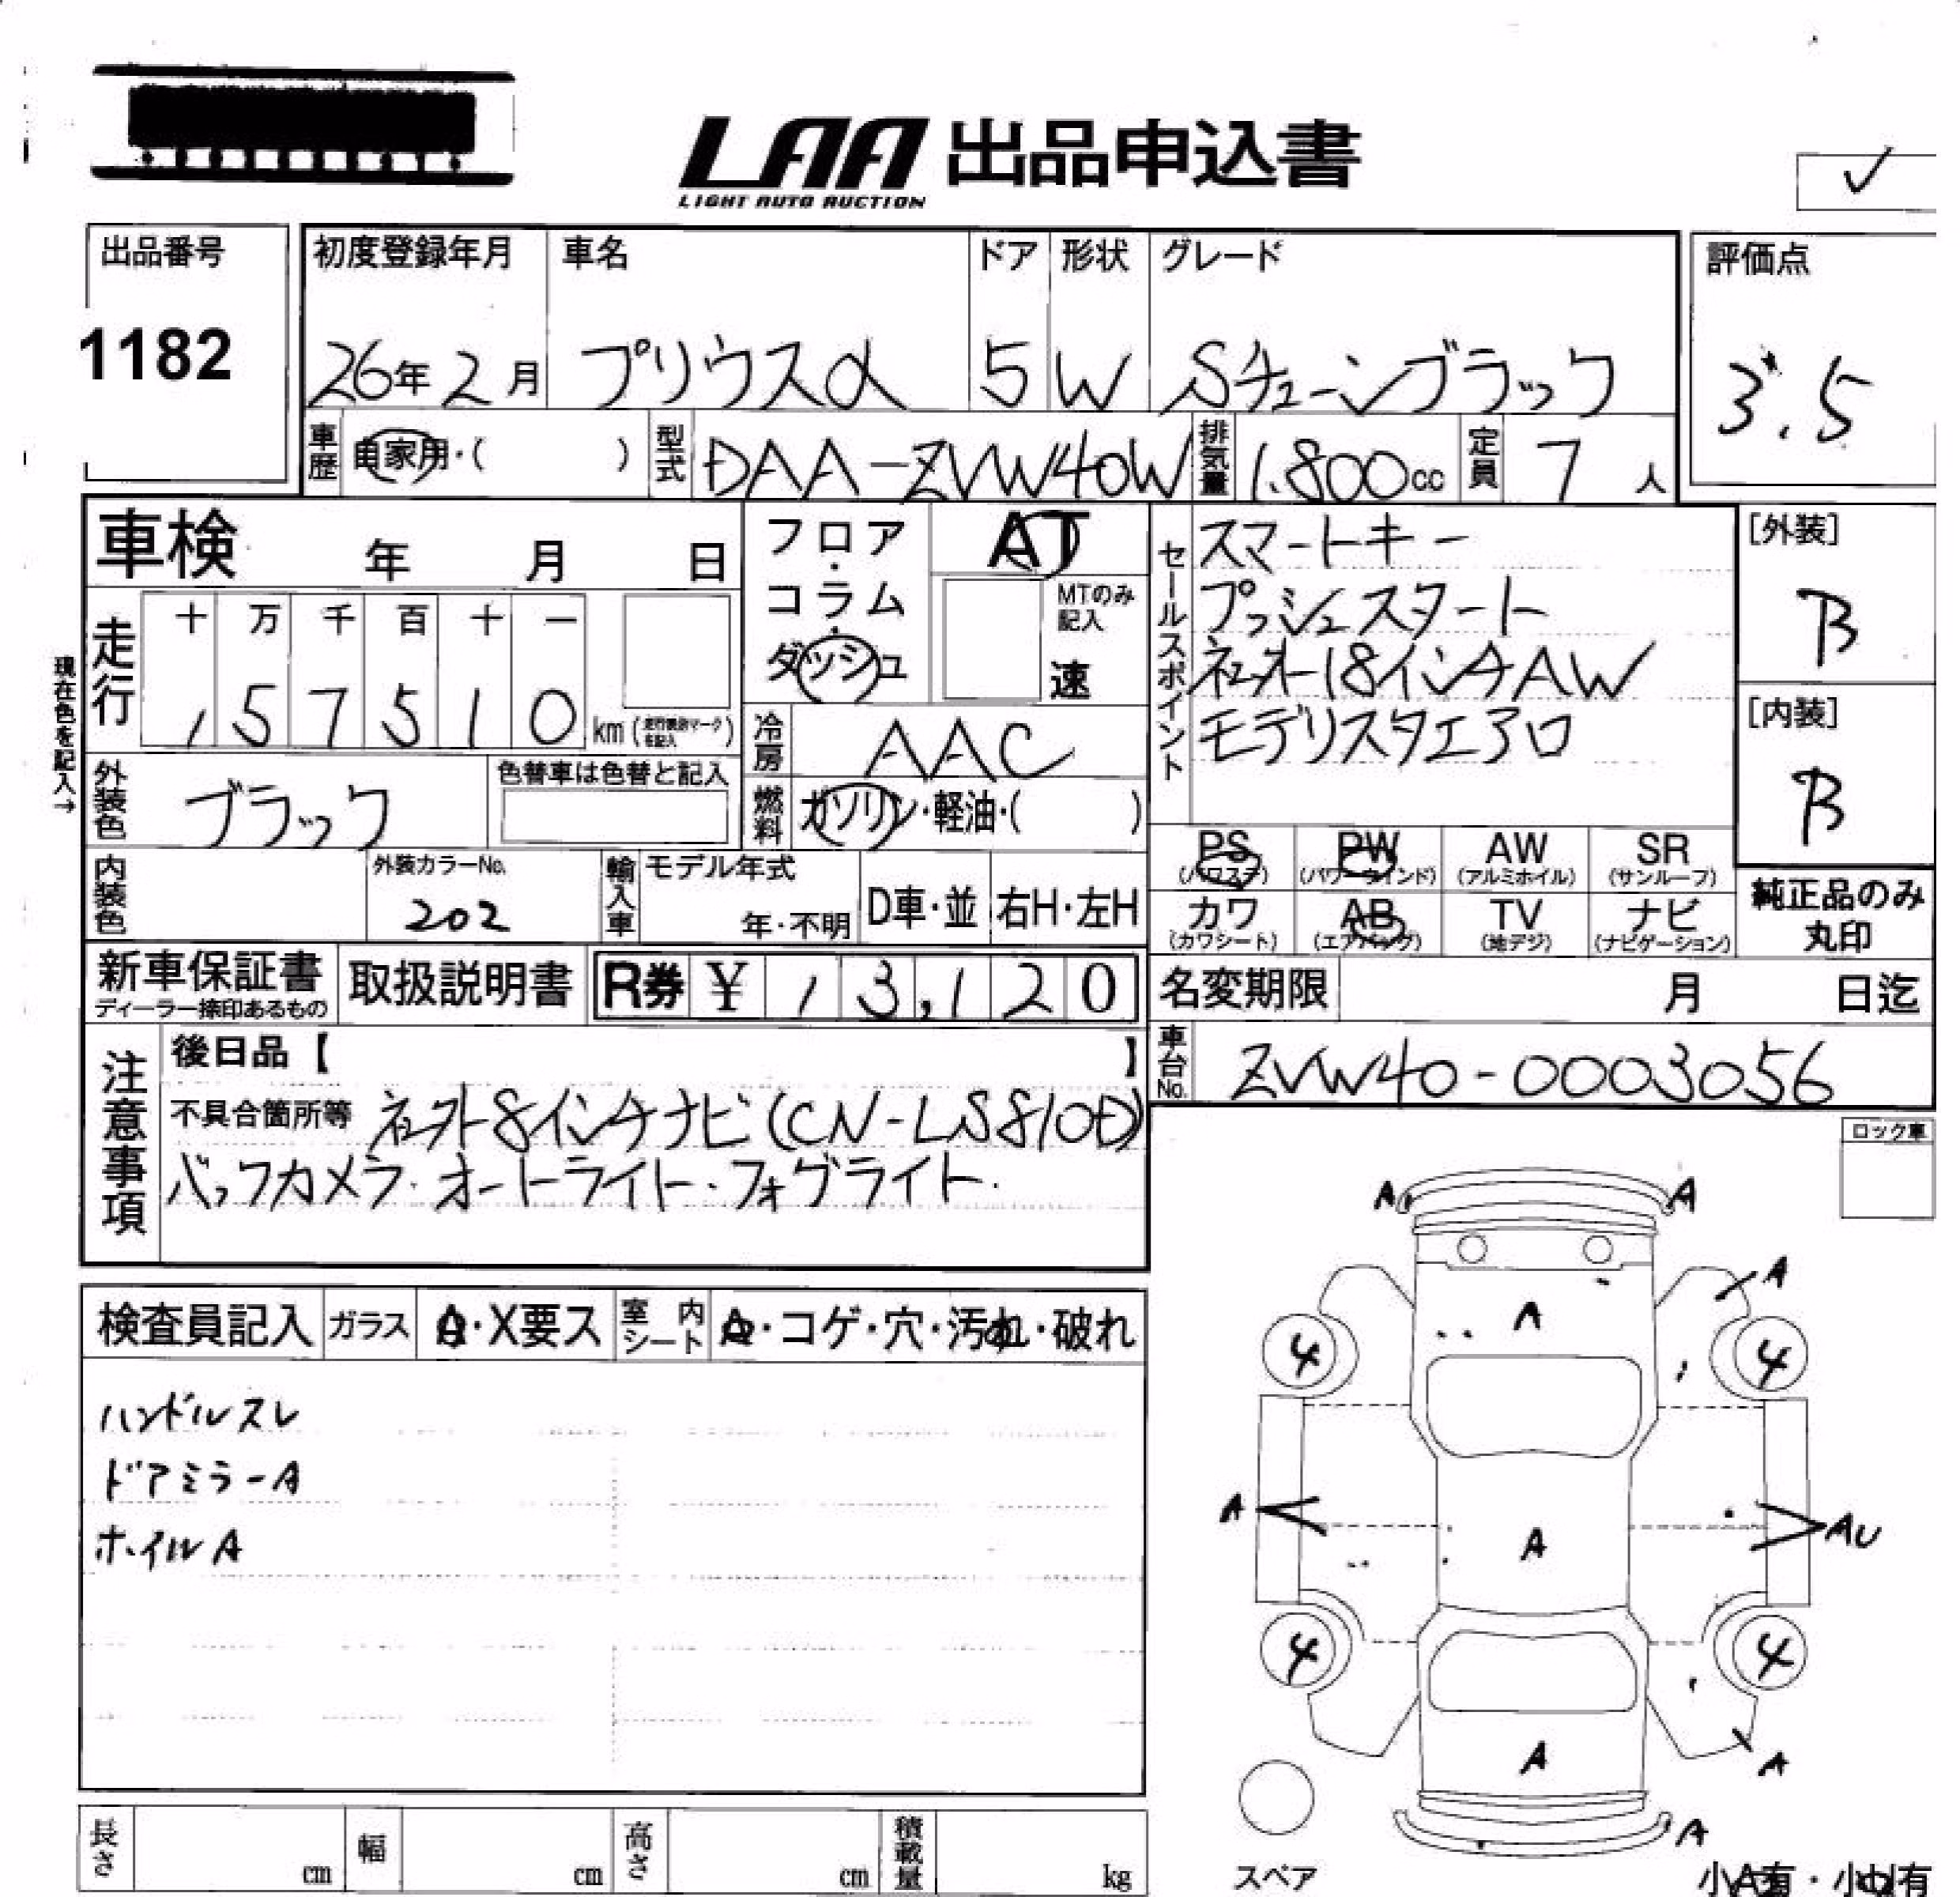 LAA 出品申込書
LIGHT AUTO AUCTION
出品番号
1182
初度登録年月 車名 ドア 形状 グレード
26年2月 プリウスα 5 W Sチューンブラック
評価点
3.5
車歴 自家用・( ) 型式 DAA-ZVW40W 排気量 1.800cc 定員 7人
車検 年 月 日
フロア・コラム・ダッシュ
AT
MTのみ記入
速
セールスポイント
スマートキー
プッシュスタート
社外18インチAW
モデリスタエアロ
[外装]
B
[内装]
B
現在色を記入→
走行 十 万 千 百 十 一
157510 km
冷房 AAC
外装色 ブラック 色替車は色替と記入
燃料 ガソリン・軽油・( )
内装色 外装カラーNo. 202
輸入車 モデル年式 年・不明 D車・並 右H・左H
PS(パワステ) PW(パワーウインド) AW(アルミホイル) SR(サンルーフ)
カワ(カワシート) AB(エアバッグ) TV(地デジ) ナビ(ナビゲーション)
純正品のみ丸印
新車保証書 ディーラー捺印あるもの 取扱説明書 R券 ¥ 13,120
名変期限 月 日迄
車台No. ZVW40-0003056
注意事項
後日品【 】
不具合箇所等 社外8インチナビ(CN-LS810D)
バックカメラ・オートライト・フォグライト・
ロック車
検査員記入 ガラス A・X要ス 室内シート A・コゲ・穴・汚れ・破れ
ハンドルスレ
ドアミラーA
ホイルA
A A
A
A
4 4
A AU
A
4 4
A
A
A
スペア
小A有・小U有
長さ cm 幅 cm 高さ cm 積載量 kg